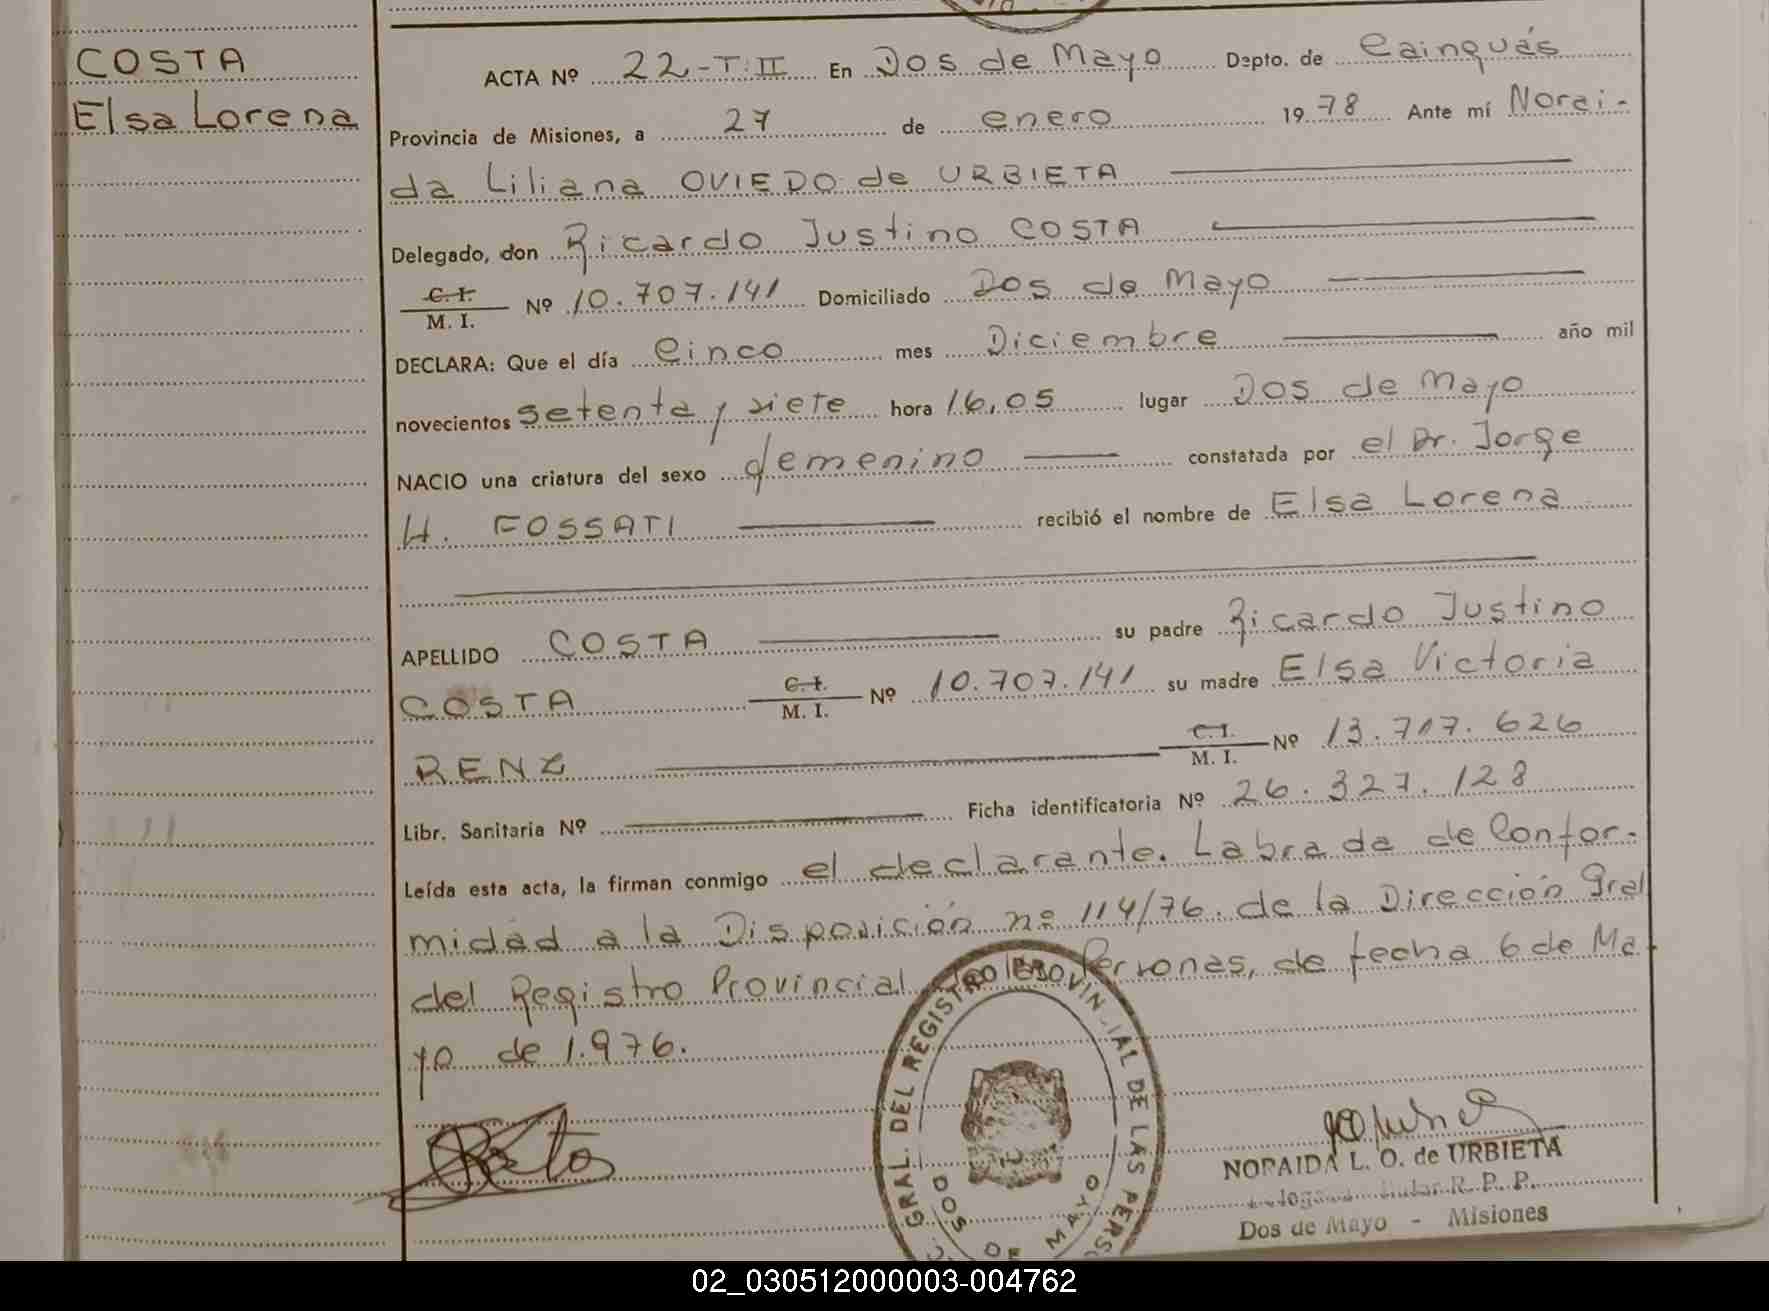 COSTA
Elsa Lorena
ACTA Nº 22-T.II En Dos de Mayo Depto. de Cainguás
Provincia de Misiones, a 27 de enero 1978 Ante mí Norai-
da Liliana OVIEDO de URBIETA
Delegado, don Ricardo Justino COSTA
C. I.
M. I. Nº 10.707.141 Domiciliado Dos de Mayo
DECLARA: Que el día Cinco mes Diciembre año mil
novecientos setenta y siete hora 16,05 lugar Dos de Mayo
NACIO una criatura del sexo femenino constatada por el Dr. Jorge
H. FOSSATI recibió el nombre de Elsa Lorena
APELLIDO COSTA su padre Ricardo Justino
COSTA C. I.
M. I. Nº 10.707.141 su madre Elsa Victoria
RENZ C. I.
M. I. Nº 13.717.626
Libr. Sanitaria Nº Ficha identificatoria Nº 26.327.128
Leída esta acta, la firman conmigo el declarante. Labrada de Confor-
midad a la Disposición nº 114/76. de la Dirección Gral
del Registro Provincial Personas, de fecha 6 de Ma-
yo de 1.976.
GRAL. DEL REGISTRO PROVINCIAL DE LAS PERSO
DOS DE MAYO
NORAIDA L. O. de URBIETA
R. P. P.
Dos de Mayo - Misiones
02_030512000003-004762